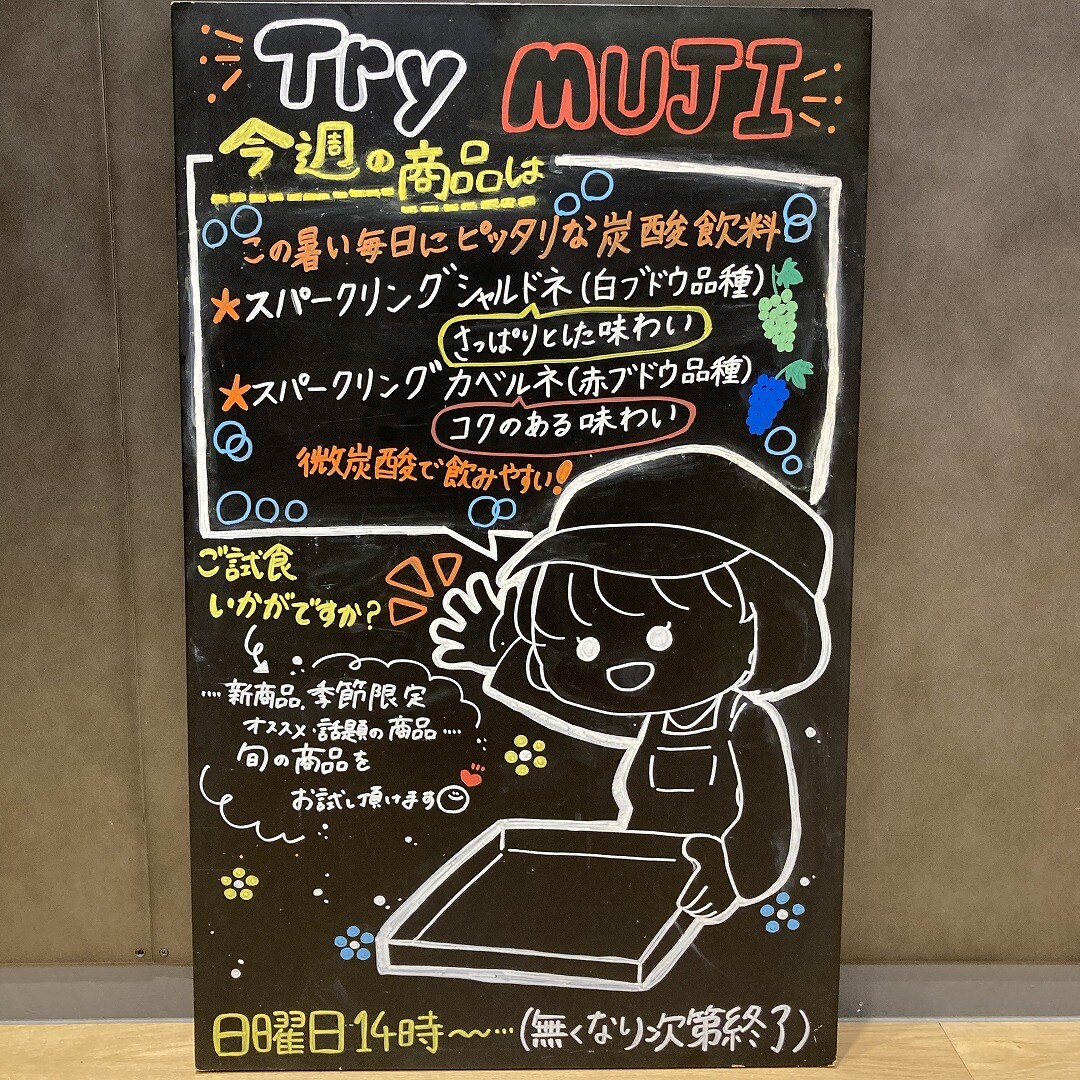 Try MUJI
今週の商品は
この暑い毎日にピッタリな炭酸飲料
★スパークリングシャルドネ(白ブドウ品種)
さっぱりとした味わい
★スパークリングカベルネ(赤ブドウ品種)
コクのある味わい
微炭酸で飲みやすい!
ご試食
いかがですか?
....新商品、季節限定
オススメ・話題の商品....
旬の商品を
お試し頂けます
日曜日14時〜…(無くなり次第終了)